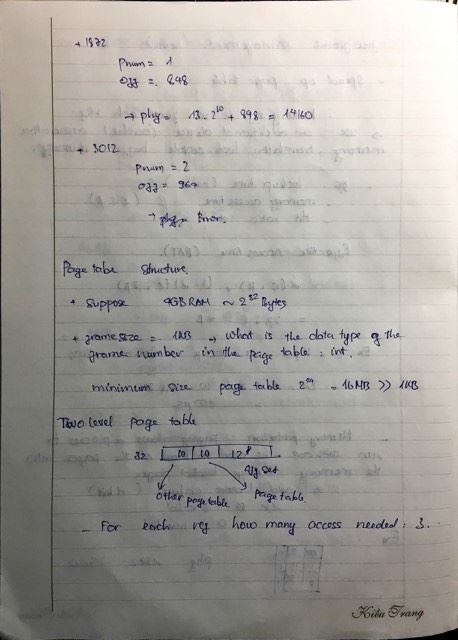 + 1872
pnum = 1
off = 848
→ phy = 13 . 2^10 + 848 = 14160
+ 3012
pnum = 2
off = 964
→ phy = Error.
Page tabe structure.
+ suppose 4GB RAM ~ 2^32 Bytes
+ frame size = 1KB → what is the data type of the
frame number in the page table : int.
minimum size page table 2^24 = 16MB >> 1KB
Two level page table
32 10 10 12
offset
other page table page table
- For each ref how many access needed : 3.
Kiều Trang